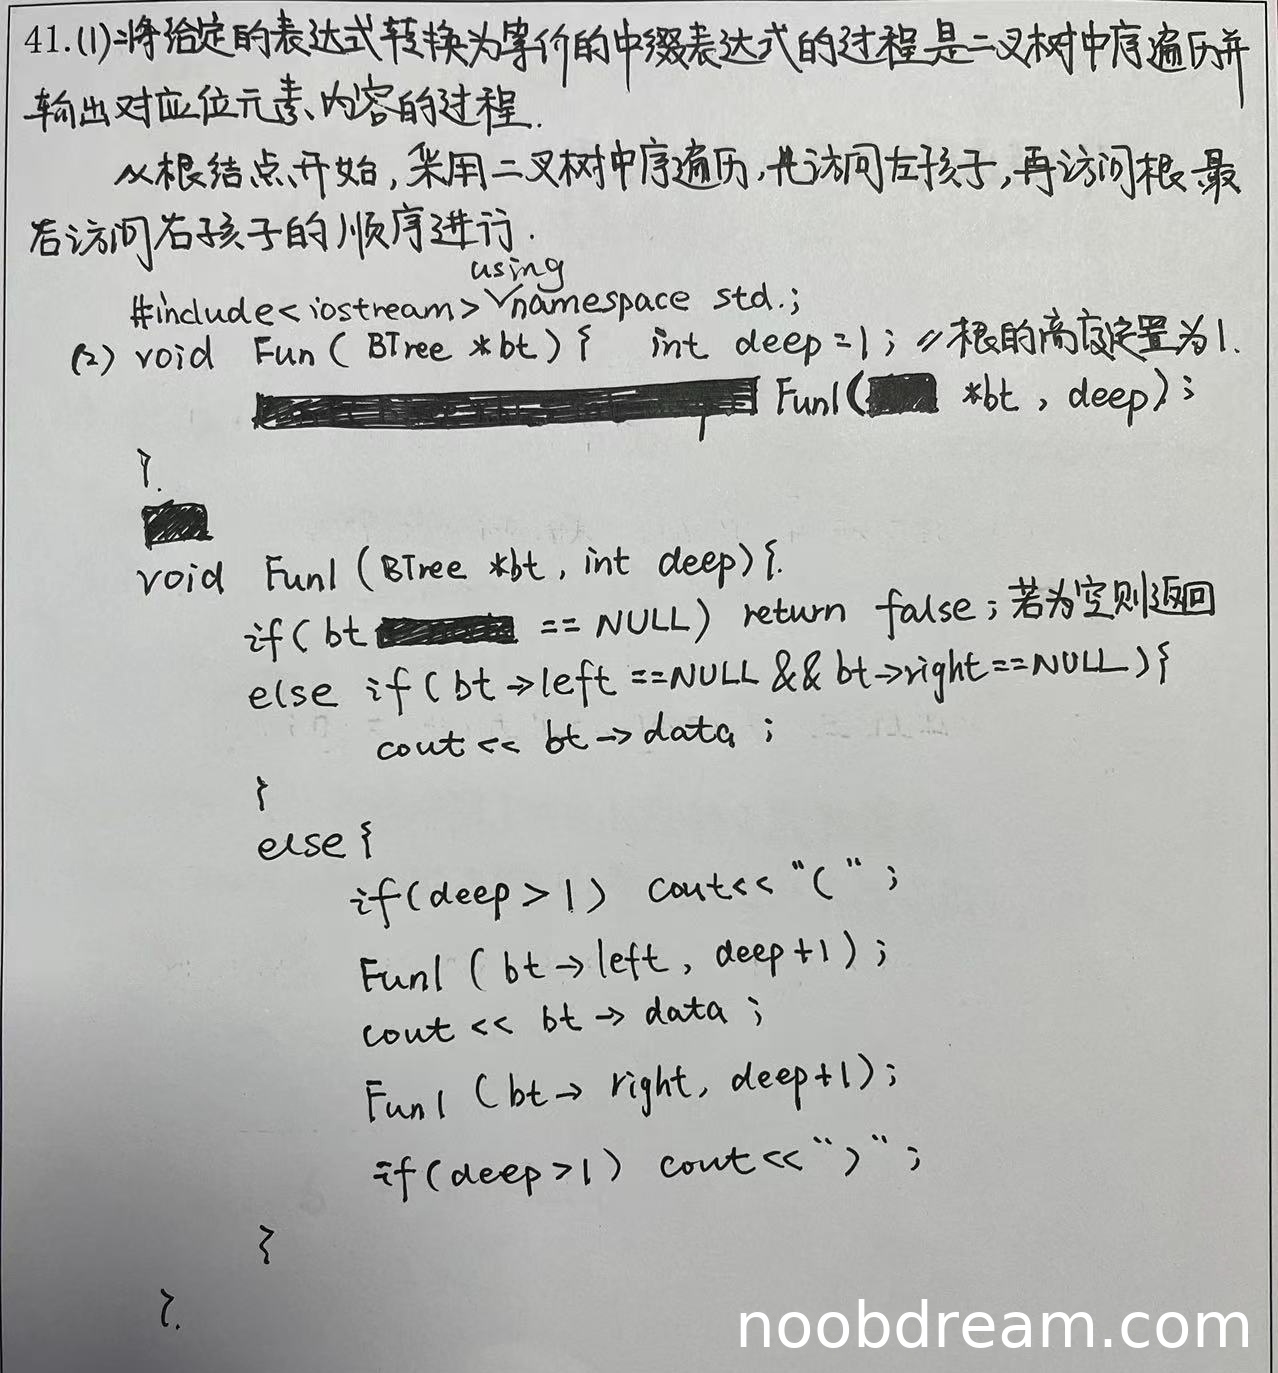 41.(1):将给定的表达式转换为等价的中缀表达式的过程是二叉树中序遍历并
输出对应位元素、内容的过程.
从根结点开始,采用二叉树中序遍历,先访问左孩子,再访问根、最
后访问右孩子的顺序进行.
using
#include<iostream> ∨namespace std.;
(2) void Fun ( BTree *bt) { int deep=1; //根的高度定置为1.
Fun1( *bt, deep);
}.
void Fun1 (BTree *bt, int deep){.
if( bt == NULL) return false; 若为空则返回
else if(bt→left ==NULL && bt→right==NULL){
cout << bt→data ;
}
else {
if(deep > 1) cout<< "( " ;
Fun1 ( bt→left, deep+1);
cout << bt→ data ;
Fun1 (bt→ right, deep+1);
if(deep>1) cout<< ")" ;
}
}.
noobdream.com